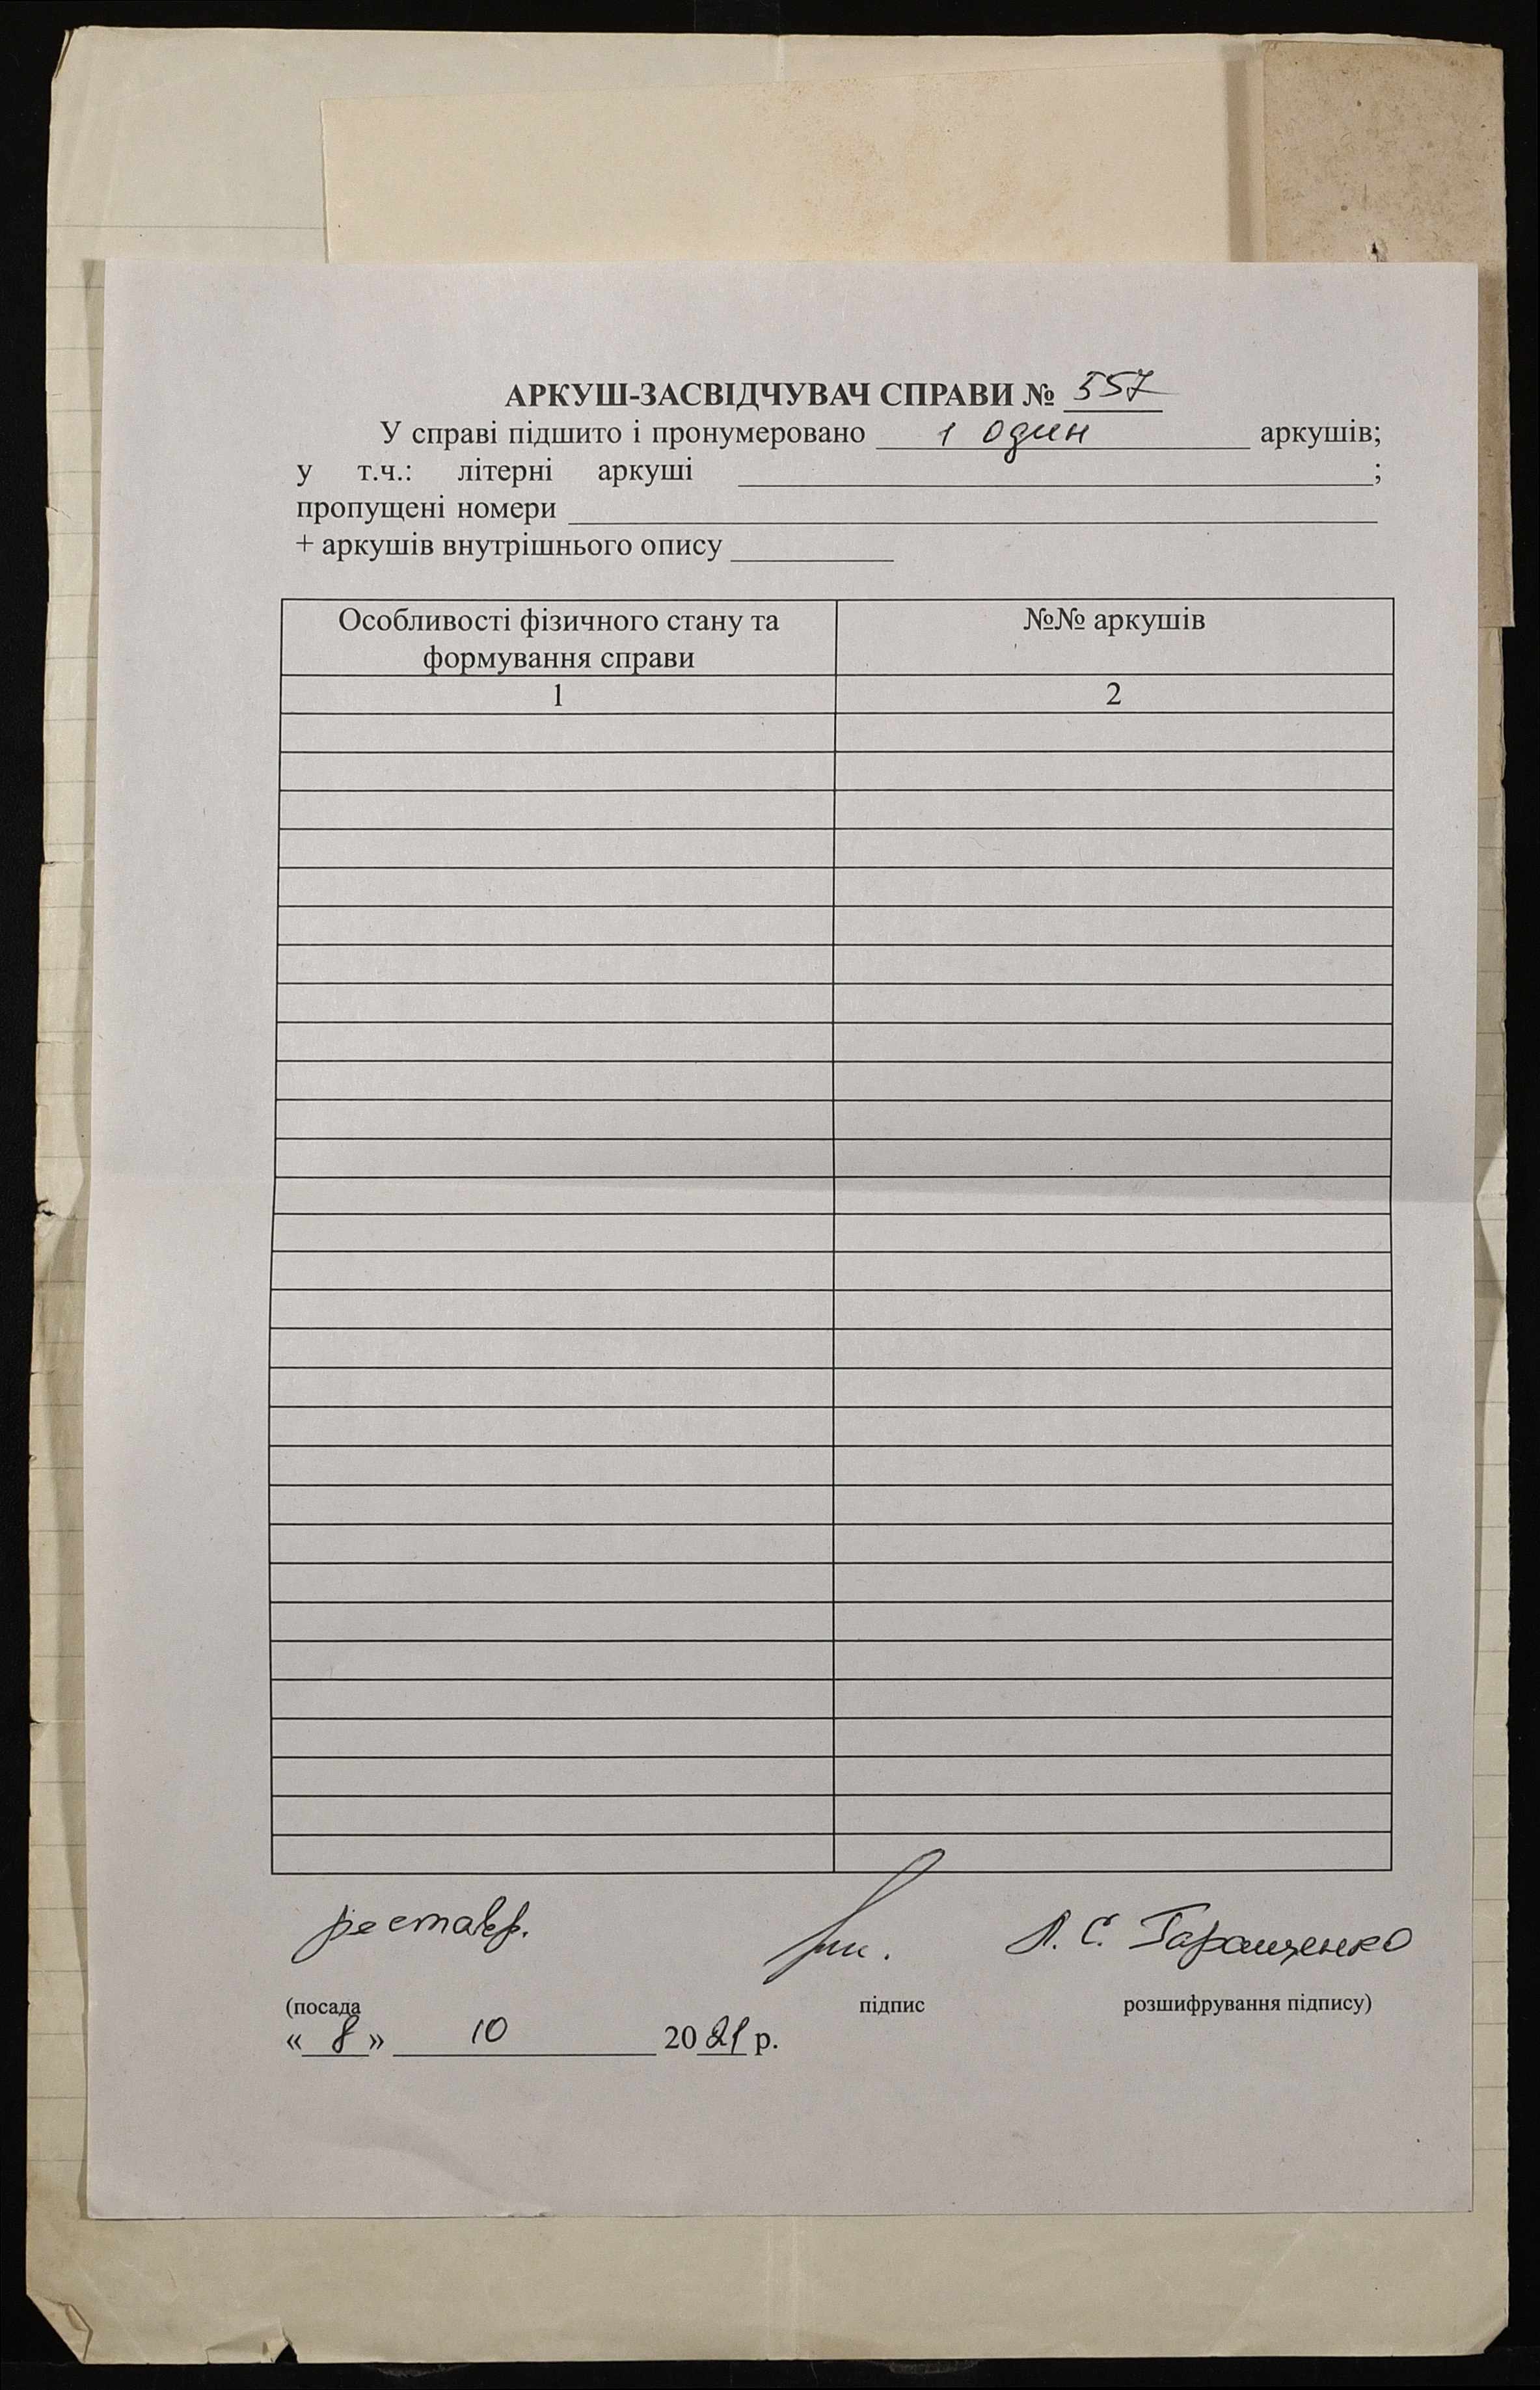 АРКУШ-ЗАСВІДЧУВАЧ СПРАВИ № 557
У справі підшито і пронумеровано 1 один аркушів;
у т.ч.: літерні аркуші ;
пропущені номери
+ аркушів внутрішнього опису
Особливості фізичного стану та №№ аркушів
формування справи
1 2
реставр. Л. Є. Гаращенко
(посада підпис розшифрування підпису)
« 8 » 10 2021 р.